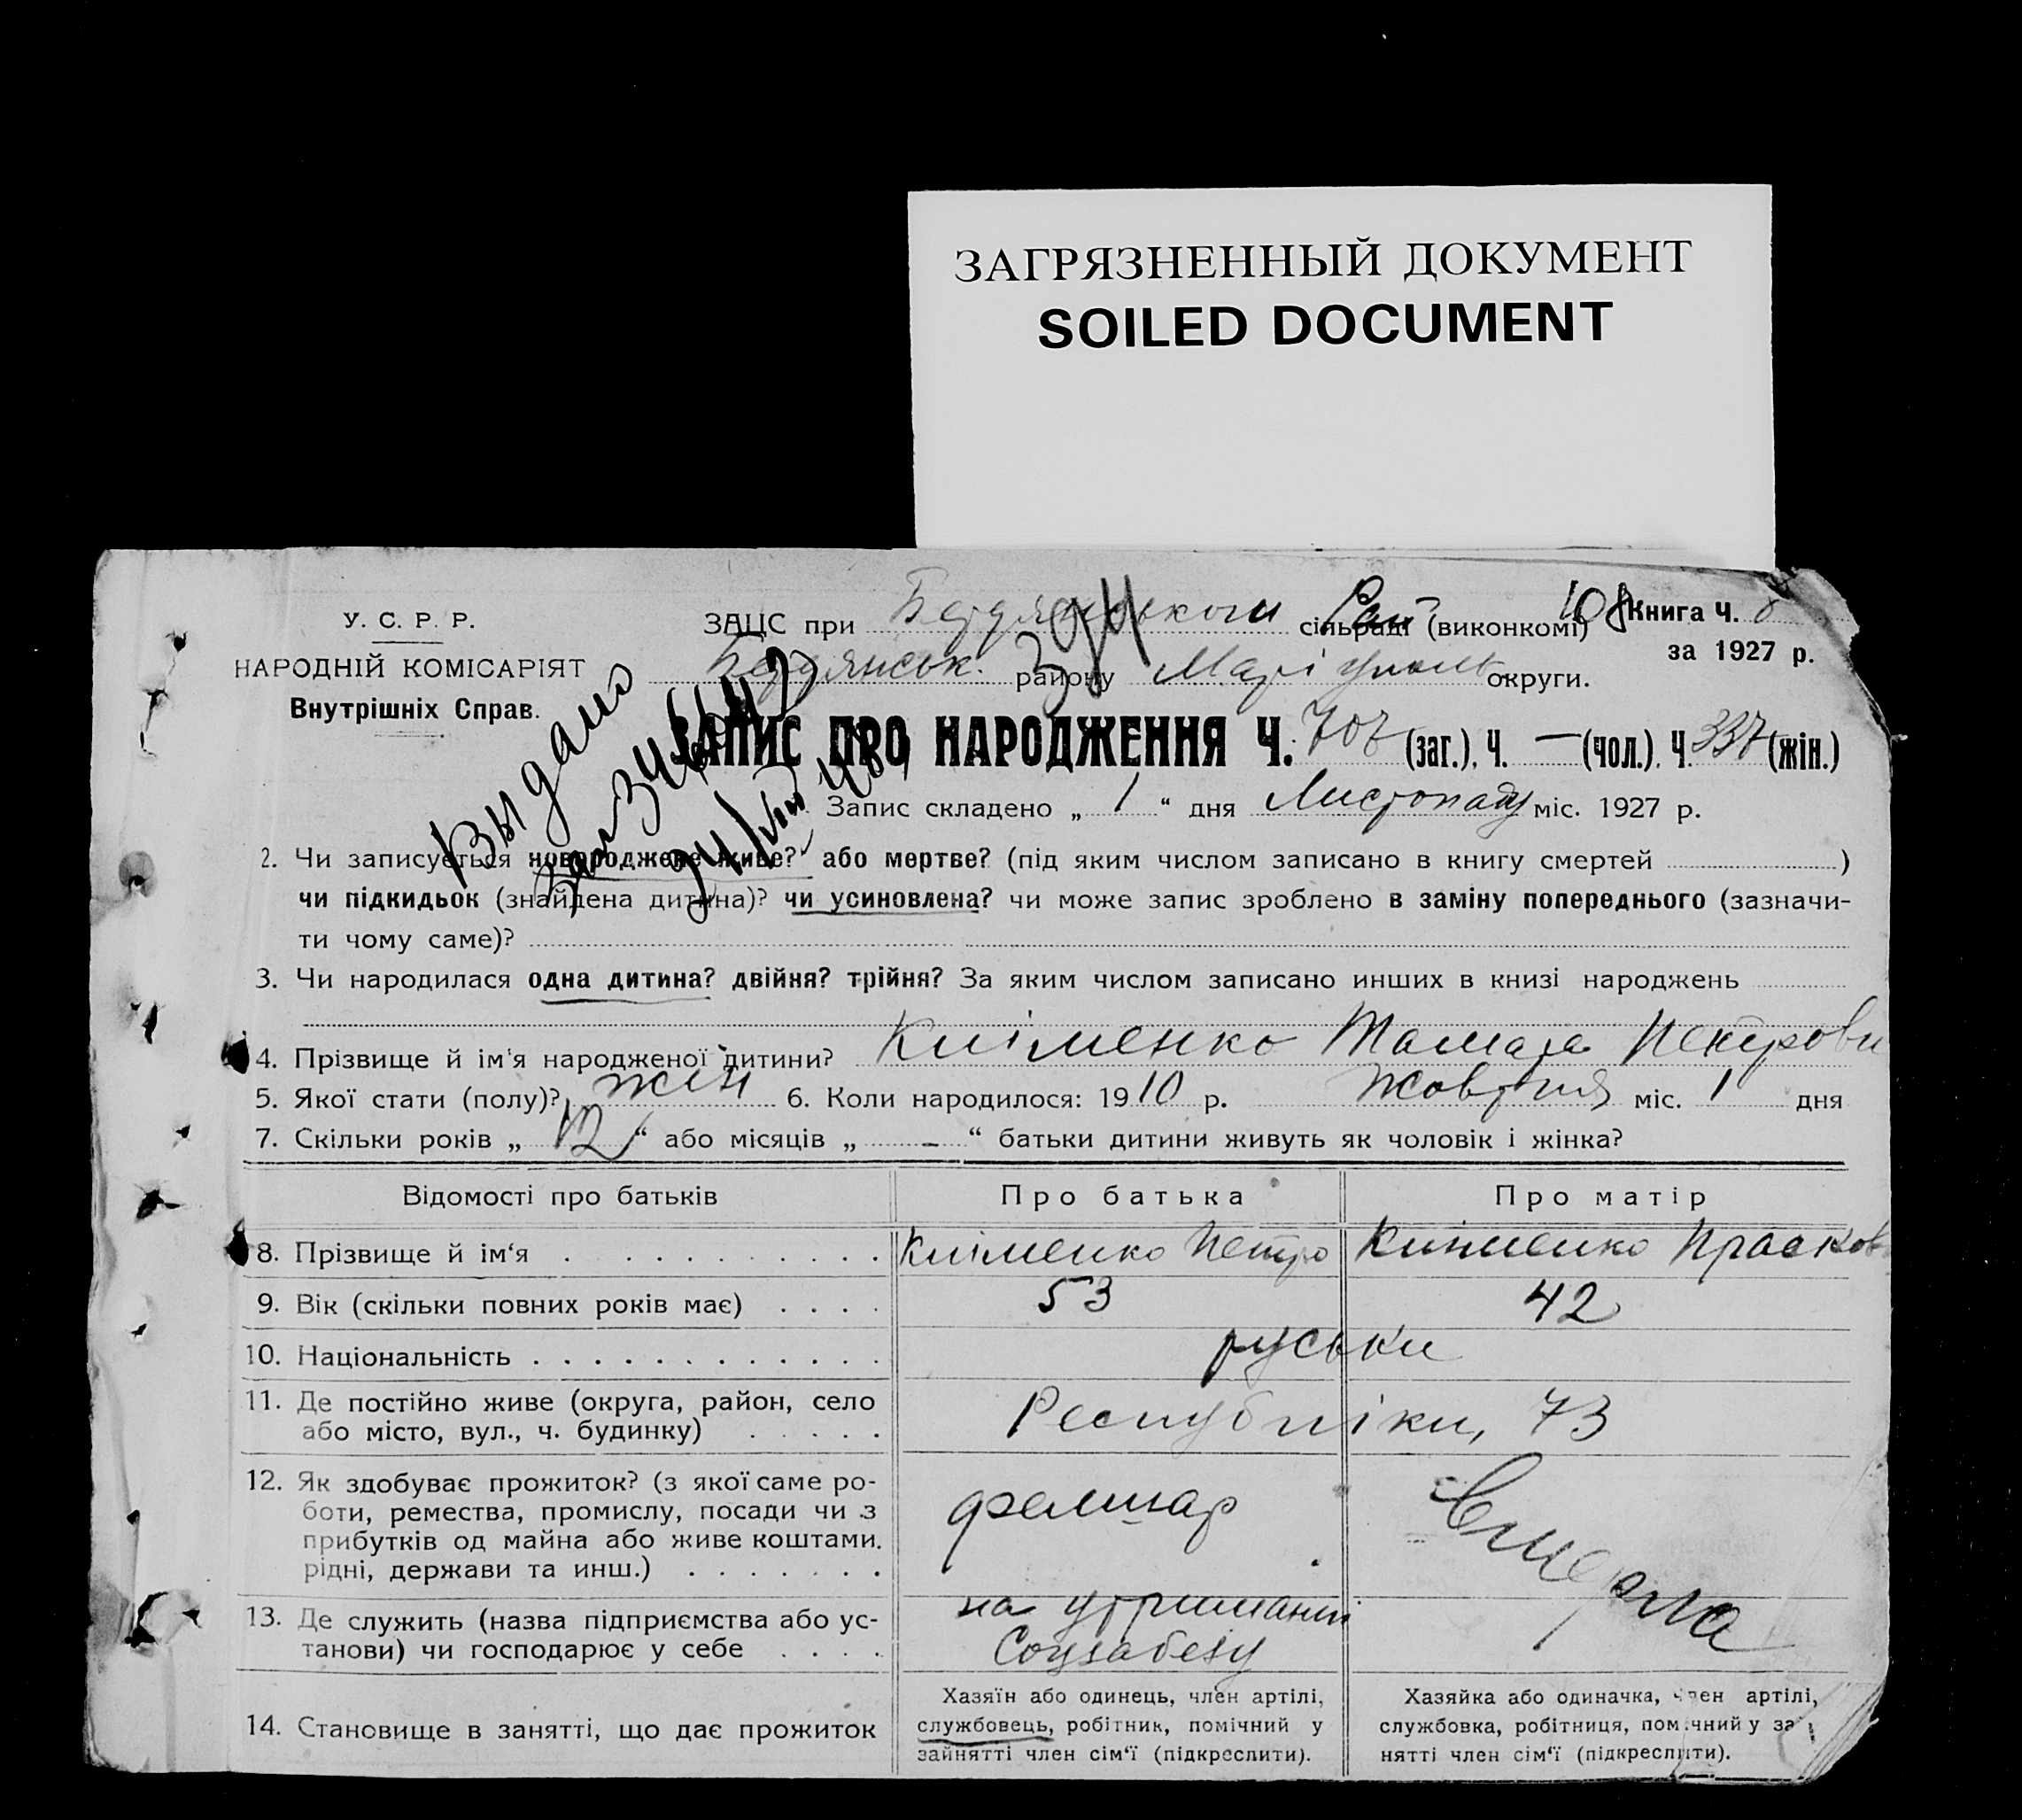 ЗАГРЯЗНЕННЫЙ ДОКУМЕНТ
SOILED DOCUMENT
У. С. Р. Р.
НАРОДНІЙ КОМІСАРІЯТ
Внутрішніх Справ.
ЗАЦС при Бердянському Рай сільраді (виконкомі)
108 Книга Ч. 8
за 1927 р.
Бердянськ. району Маріупольс округи.
ЗАПИС ПРО НАРОДЖЕННЯ Ч. 707 (заг.), Ч. — (чол.), Ч. 337 (жін.)
Видано
Запис складено „ 1 “ дня Листопаду міс. 1927 р.
2. Чи записується новороджене живе? або мертве? (під яким числом записано в книгу смертей )
чи підкидьок (знайдена дитина)? чи усиновлена? чи може запис зроблено в заміну попереднього (зазначи-
ти чому саме)?
3. Чи народилася одна дитина? двійня? трійня? За яким числом записано инших в книзі народжень
4. Прізвище й ім'я народженої дитини? Кліменко Тамара Петровн
5. Якої стати (полу)? жін 6. Коли народилося: 1910 р. Жовтня міс. 1 дня
7. Скільки років „ 12 “ або місяців „ – “ батьки дитини живуть як чоловік і жінка?
Відомості про батьків
Про батька
Про матір
8. Прізвище й ім'я . . . . . . . . . Кліменко Петро Кліменко Прасков
9. Вік (скільки повних років має) . . . . 53 42
10. Національність . . . . . . . . . . . . . руськи
11. Де постійно живе (округа, район, село
або місто, вул., ч. будинку) . . . . .
Республіки, 73
12. Як здобуває прожиток? (з якої саме ро-
боти, ремества, промислу, посади чи з
прибутків од майна або живе коштами.
рідні, держави та инш.) . . . . . . .
фелшар
вмерла
13. Де служить (назва підприємства або ус-
танови) чи господарює у себе . . . .
на утриманні
Соцзабезу
14. Становище в занятті, що дає прожиток
Хазяїн або одинець, член артілі,
службовець, робітник, помічний у
зайнятті член сім'ї (підкреслити).
Хазяйка або одиначка, член артілі,
службовка, робітниця, помічний у за
нятті член сім'ї (підкреслити).